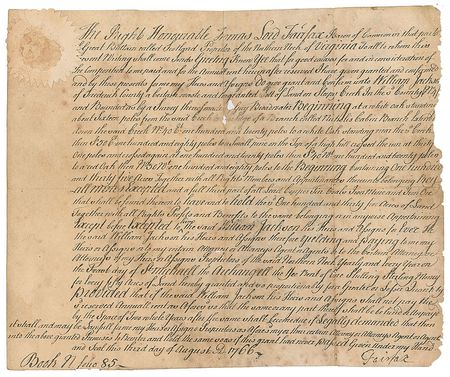 The Right Honourable Thomas Lord Fairfax Baron of Cameron in that part of
Great Britain called Scotland Proprietor of the Northern Neck of Virginia To all to whom this
present Writing shall come Sends Greeting Know Yee that for good causes and in consideration of
the Composition to me paid and for the Annual rent hereafter reserved I have given granted and confirmed
and by these presents for my Heirs and Assigns Do give grant and confirm unto William Jackson
of Frederick County a certain waste and ungranted of Land on County
and Bounded as by a Survey thereof made by Beginning at a white oak
about sixteen poles from the said Creek on the of a Branch called Cabin Branch
from the said Creek one hundred and twenty poles to a white Oak standing near the Creek
then one hundred and eighty poles to a small pine on the Top of a high hill the
poles and crossed again at one hundred and twenty poles one hundred and twenty poles
to a red Oak then one hundred and eighty poles to the Beginning Containing One hundred
and thirty five Acres Together with all Rights Members and Appurtenances thereunto belonging Royal
Mines Excepted and a full third part of all Lead Copper Tinn Coals Iron Mine and Iron Oar
that shall be found thereon To have and to hold the sd. One hundred and thirty five Acres of Land
Together with all Rights Profits and Benefits to the same belonging or in anywise Appertaining
Except before Excepted To the said William Jackson his Heirs and Assigns for Ever He
the said William Jackson his Heirs and Assigns therefore Yeilding and Paying to me my
Heirs or Assigns or to my certain Attorney or Attorneys Agent or Agents or to the certain Attorney or
Attorneys of my Heirs or Assigns Proprietors of the said Northern Neck Yearly and every Year on
the Feast day of St. Michael the Archangel the Fee Rent of One Shilling Sterling Money
for every fifty Acres of Land hereby granted and so proportionably for a greater or lesser Quantity
Provided that if the said William Jackson his Heirs or Assigns shall not pay the
reserved Annual rent as aforesaid so that the same or any part thereof shall be behind & unpaid
by the Space of Two whole Years after the same shall become due if Legally demanded that then
it shall and may be lawfull for me my Heirs or Assigns Proprietors as aforesaid my or their certain Attorney or Attorneys Agent or Agents
into the above granted Premises to Reenter and hold the same so as if this grant had never Passed Given under my Hand
and Seal this third day of August A.D. 1766
Book N folio 85 Fairfax